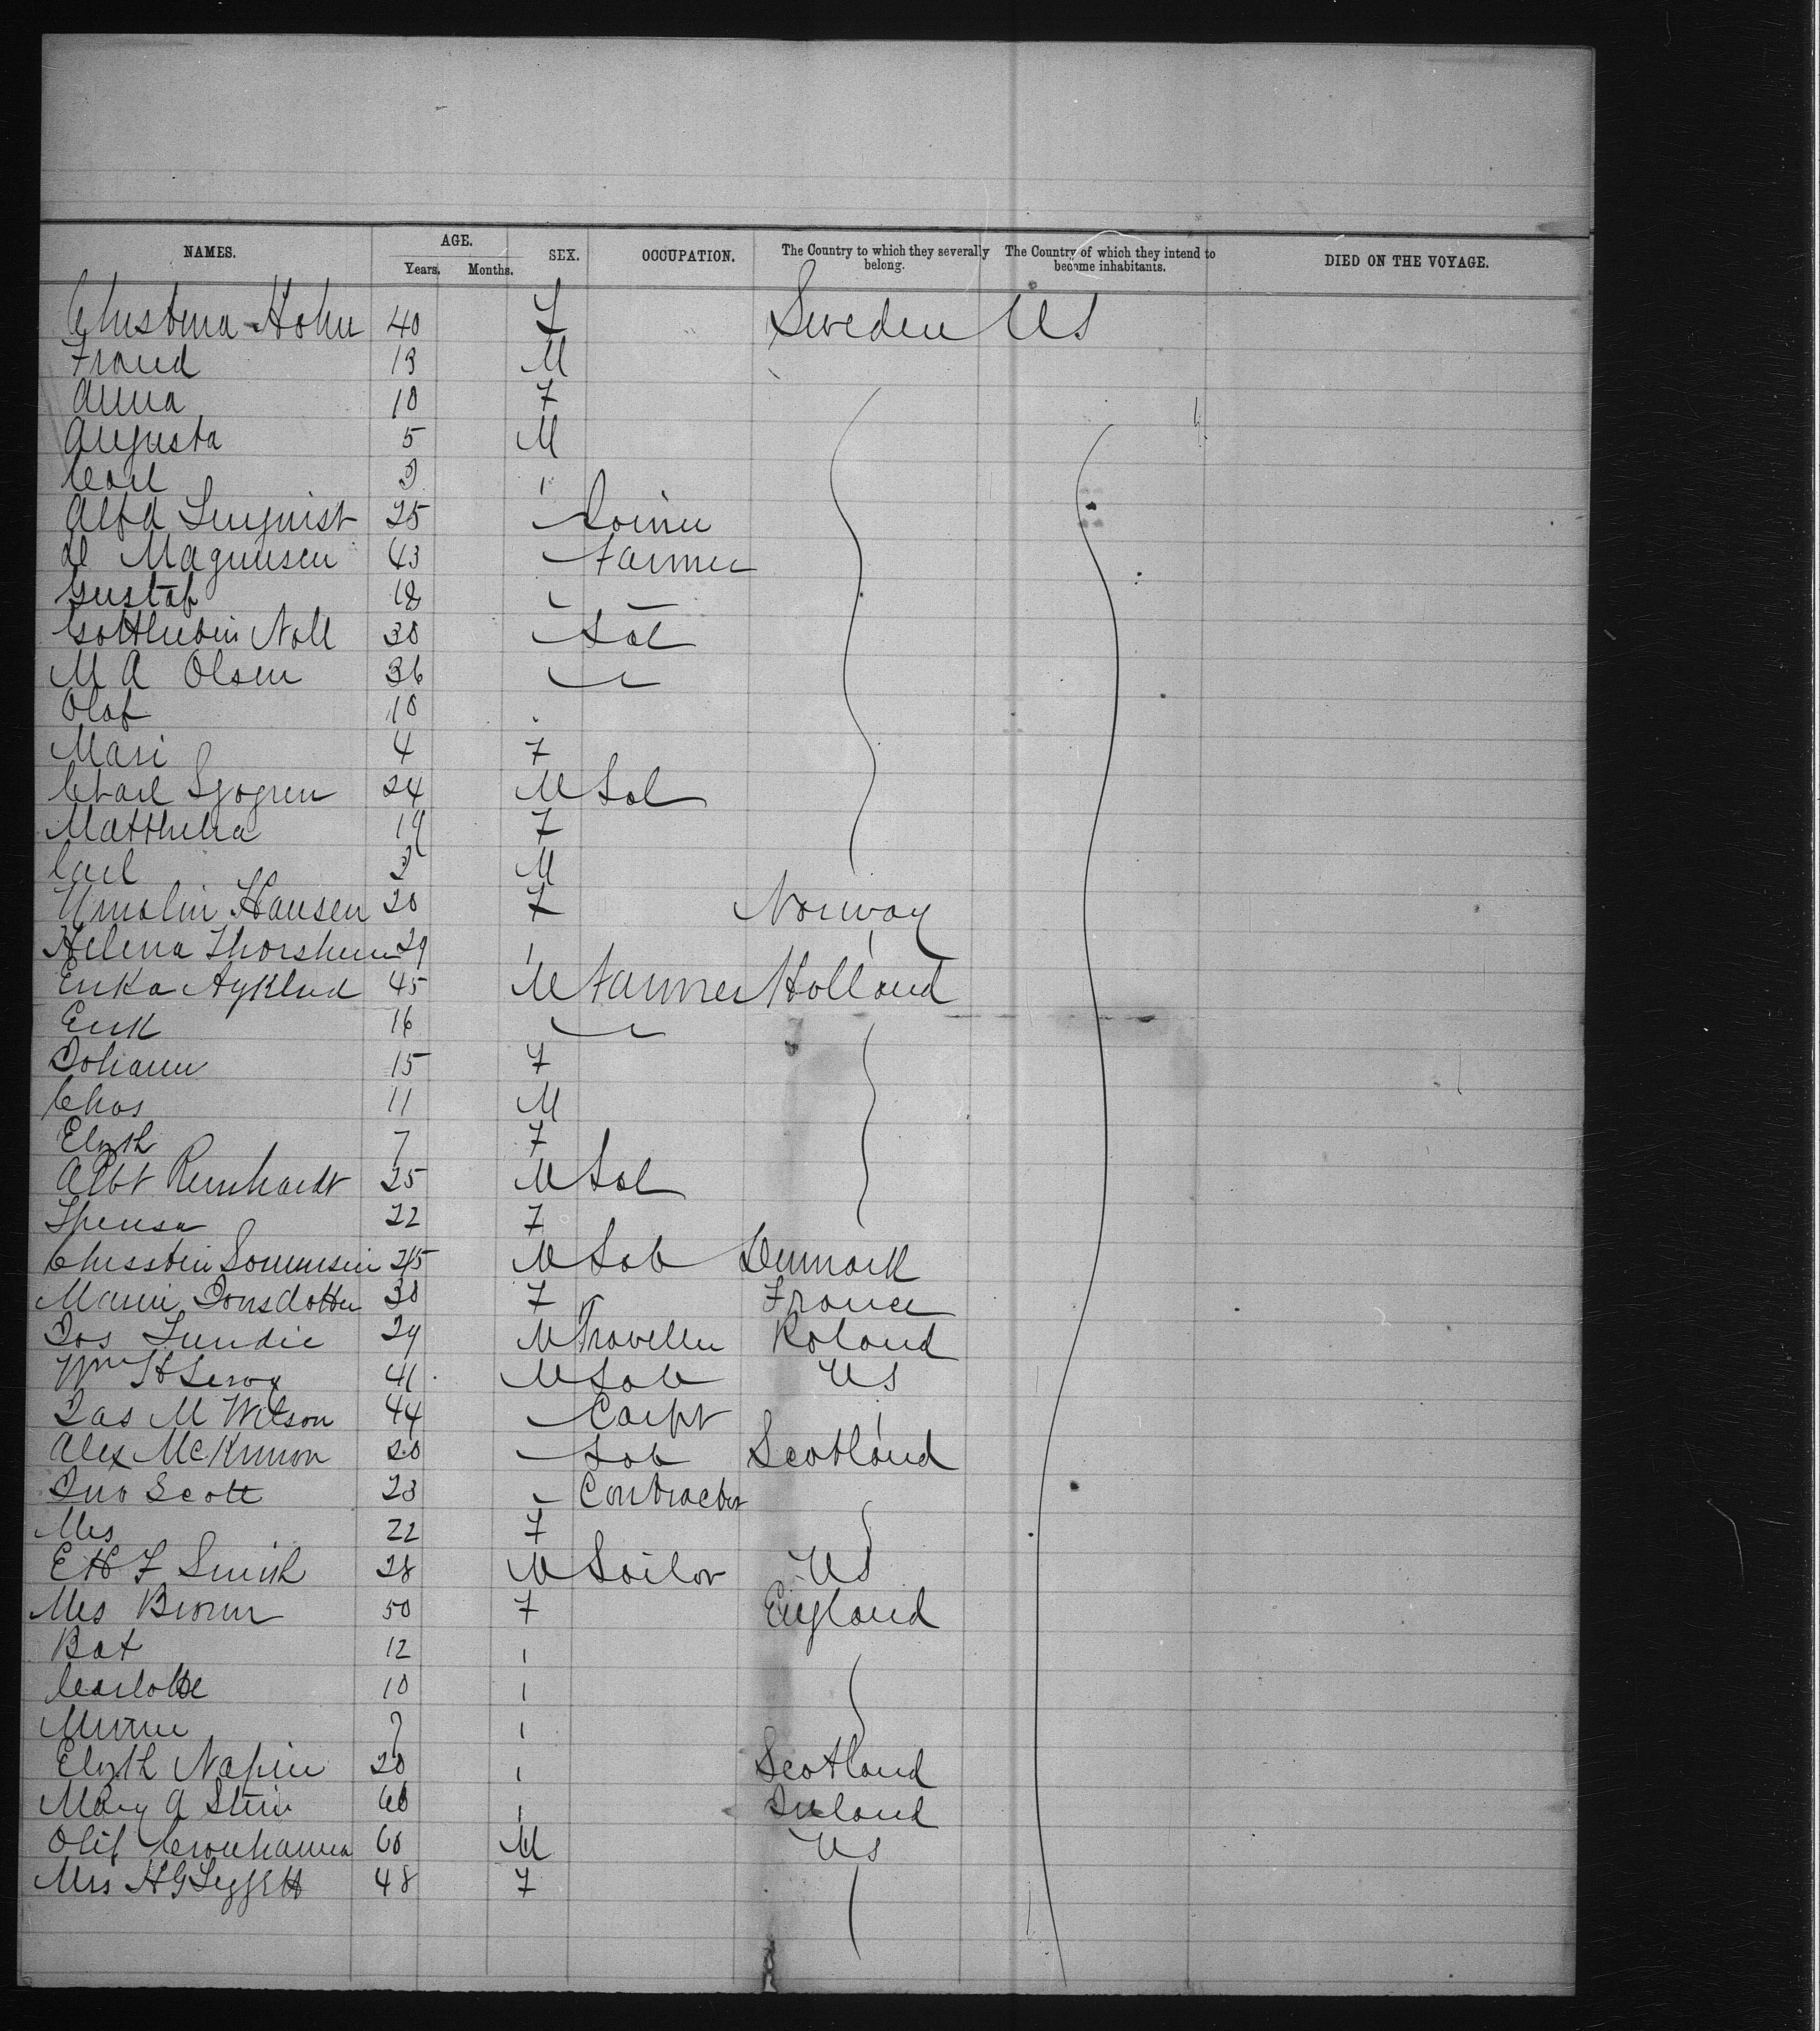 NAMES. AGE. Years. Months. SEX. OCCUPATION. The Country to which they severally belong. The Country of which they intend to become inhabitants. DIED ON THE VOYAGE.
Christina Hohn 40 F Sweden US
Frand 13 M
Anna 10 F
Augusta 5 M
Carl 2 "
Alfd Linquist 25 Joiner
Magnusen 43 Farmer
Gustaf 18
Gottliebin Noll 30 Lab
M A Olsen 36
Olaf 10
Mari 4 F
Charl Sjogren 24 M Lab
Matthilia 19 F
Carl 2 M
Hansen 20 F Norway
Helena 29 "
Erika 45 M Farmer Holland
Erik 16
Johann 15 F
Chas 11 M
Elizth 7 F
Albt Reinhardt 25 M Lab
22 F
Christin Sorensin 25 M Lab Denmark
Marin Jonsdotter 30 F France
Jos Lundie 29 M Traveller Roland
Wm H Leroy 41 M Lab US
Jas M Wilson 44 Carpt
Alex McKinnon 20 Lab Scotland
Jno Scott 23 Contractor
Mrs 22 F
E H F Smith 28 M Sailor US
Mrs Brown 50 F England
Bat 12 "
Charlotte 10 "
Minnie 7 "
Elizth Napier 20 " Scotland
Mary A Stein 60 " Ireland
Olif 60 M US
Mrs H G Leggett 48 F